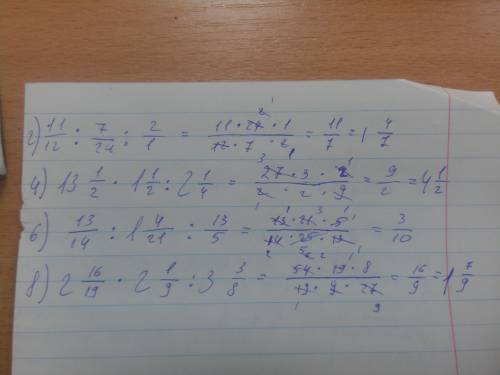 2) 11/12 : 7/24 : 2/1 = (11 · 24 · 1)/(12 · 7 · 2) = 11/7 = 1 4/7
4) 13 1/2 · 1 1/2 : 2 1/4 = (27 · 3 · 4)/(2 · 2 · 9) = 9/2 = 4 1/2
6) 13/14 : 1 4/21 : 13/5 = (13 · 21 · 5)/(14 · 25 · 13) = 3/10
8) 2 16/19 · 2 1/9 : 3 3/8 = (54 · 19 · 8)/(19 · 9 · 27) = 16/9 = 1 7/9